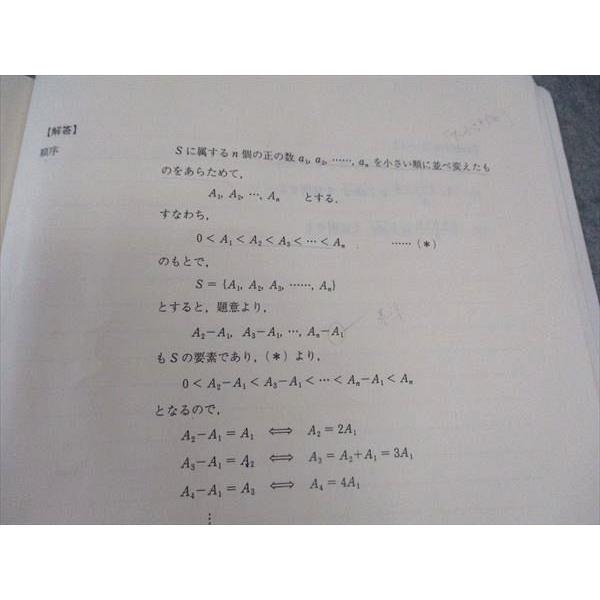 【解答】
順序
Sに属するn個の正の数 a₁, a₂, ……, aₙ を小さい順に並べ変えたも
のをあらためて,
A₁, A₂, …, Aₙ とする.
すなわち,
0 < A₁ < A₂ < A₃ < … < Aₙ ……(*)
のもとで,
S = {A₁, A₂, A₃, ……, Aₙ}
とすると, 題意より,
A₂−A₁, A₃−A₁, …, Aₙ−A₁
もSの要素であり, (*)より,
0 < A₂−A₁ < A₃−A₁ < … < Aₙ−A₁ < Aₙ
となるので,
A₂−A₁ = A₁ ⟺ A₂ = 2A₁
A₃−A₁ = A₂ ⟺ A₃ = A₂+A₁ = 3A₁
A₄−A₁ = A₃ ⟺ A₄ = 4A₁
⋮